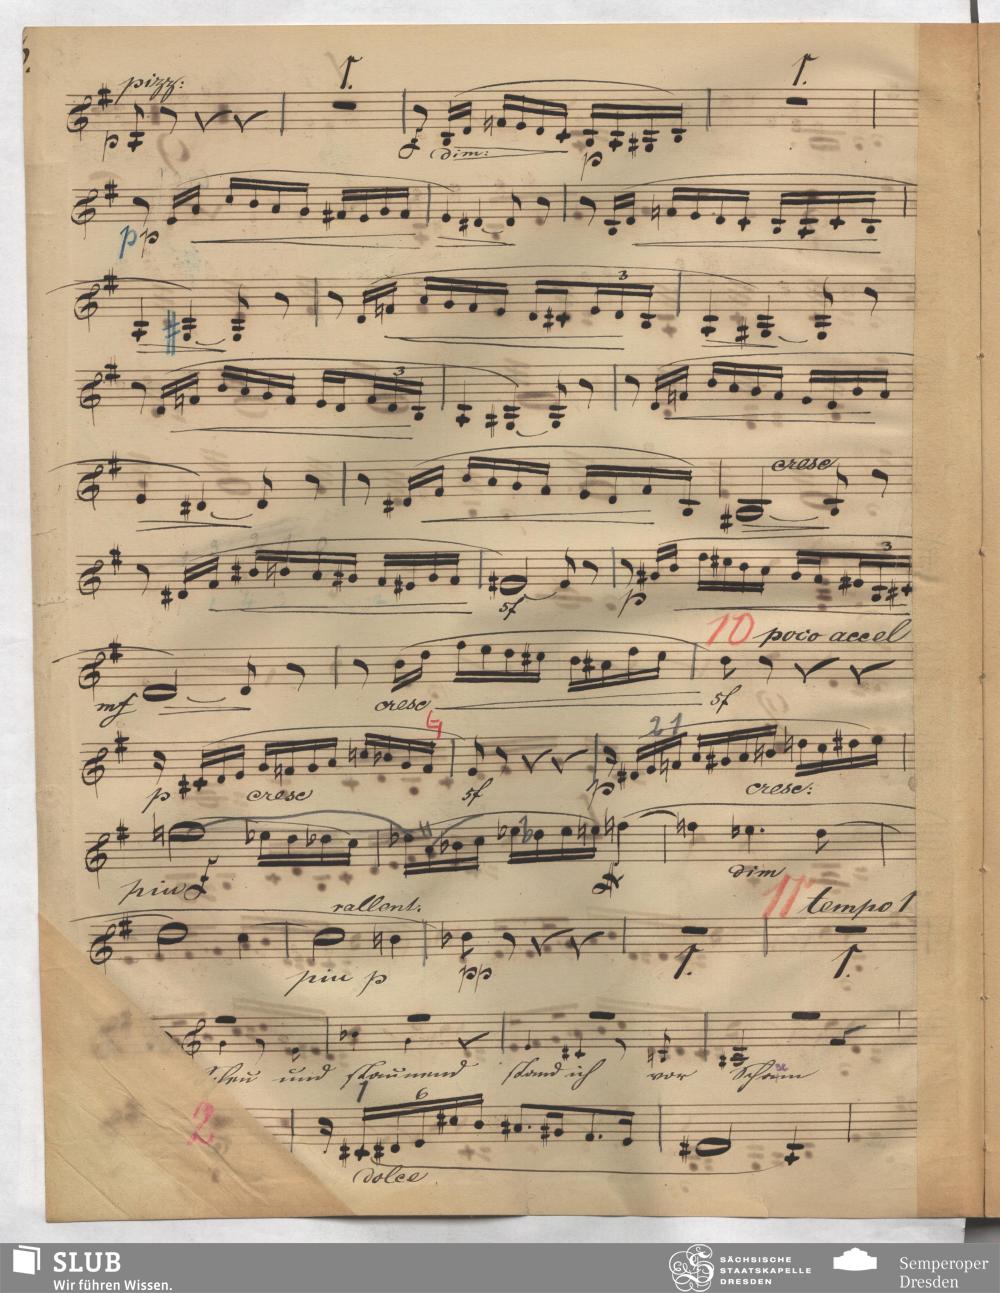 pizz:
1.
1.
p
f dim:
p
pp
3
3
cresc
sf
p
3
10 poco accel
mf
cresc
sf
21
p
cresc
sf
p
cresc:
piu f
dim
rallent.
11 tempo 1
piu p
pp
1.
1.
und staunend stand ich vor
1
6
2
dolce
SLUB
Wir führen Wissen.
SÄCHSISCHE
STAATSKAPELLE
DRESDEN
Semperoper
Dresden